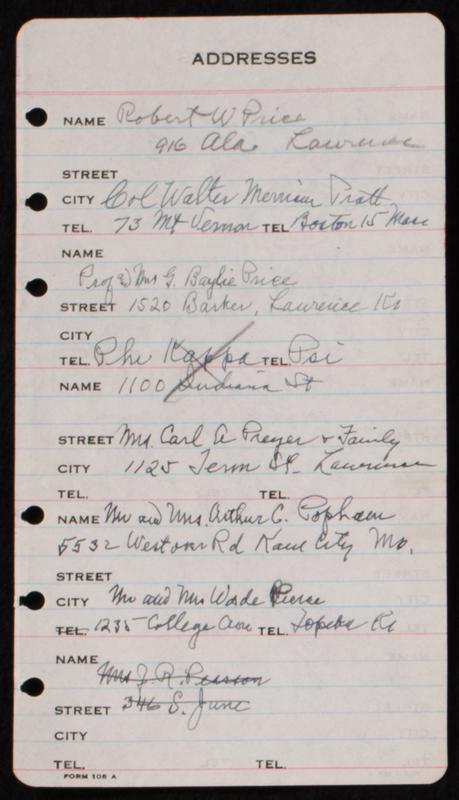 ADDRESSES
NAME Robert W Price
916 Ala. Lawrence
STREET
CITY Col Walter Merriam Pratt
TEL. 73 Mt Vernon TEL. Boston 15 Mass
NAME
Prof & Mrs G. Baylie Price
STREET 1520 Barker, Lawrence Ks
CITY
TEL. Phi Kappa TEL. Psi
NAME 1100 Indiana St
STREET Mrs. Carl A Preyer & Family
CITY 1125 Tenn St. Lawrence
TEL. TEL.
NAME Mr and Mrs. Arthur C. Popham
5532 Westover Rd Kans City Mo.
STREET
CITY Mr and Mrs Wade Pierce
TEL. 1235 College Ave TEL. Topeka Ks
NAME
Mrs J. R. Pearson
STREET 346 S. June
CITY
TEL. TEL.
FORM 108 A